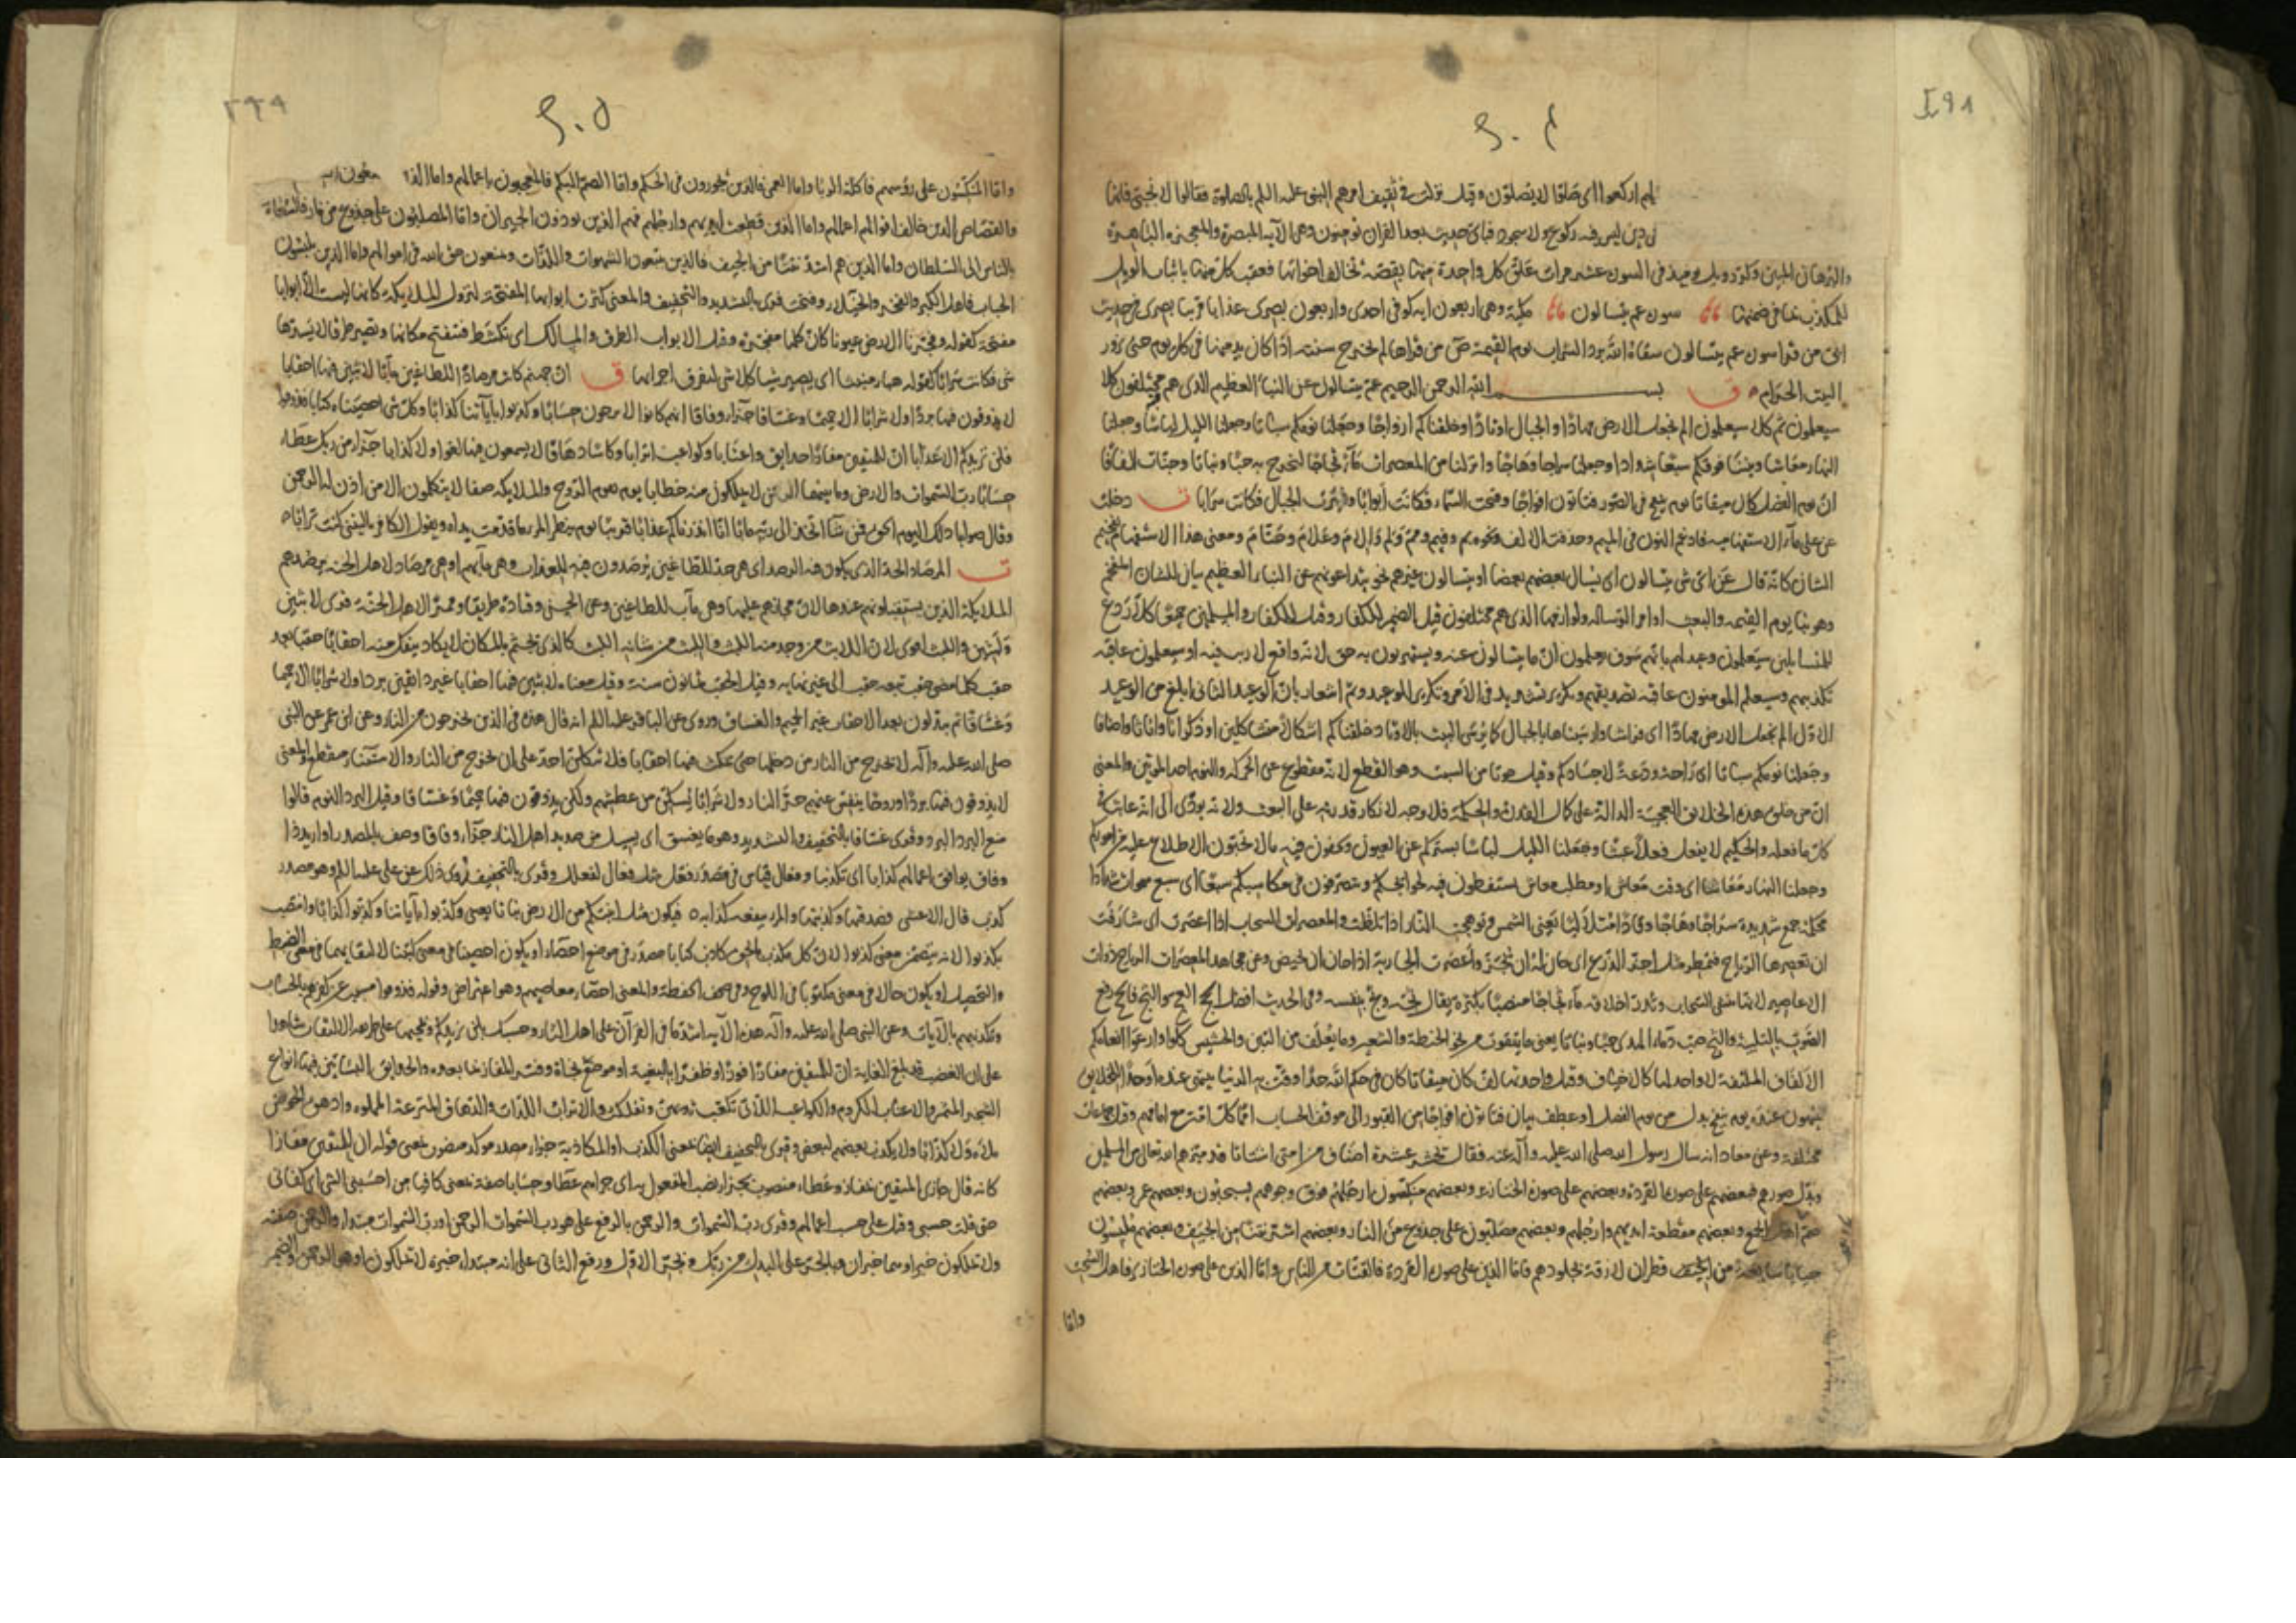 لهم اركعوا اى صلوا لا يصلون وقيل نزلت فى ثقيف امرهم النبى عليه السلم بالصلوة فقالوا لا نحنى فانها
دين ليس فيه ركوع ولا سجود فباى حديث بعد القران يؤمنون وهى الآية المبصرة والمعجزة الباهرة
والبرهان المبين وكرر ويل يومئذ فى السورة عشر مرات علق كل واحدة منها بقصة تخالف اخواتها فعقب كل منها باثبات الويل
للمكذب بما فى ضمنها سورة عم يتسالون مكية وهى اربعون اية كوفى احدى واربعون بصرى عذابا قريبا بصرى فى حديث
ابى من قرا سورة عم يتسالون سقاه الله برد الشراب يوم القيمة ص من قراها لم تخرج سنته اذا كان يدمنها فى كل يوم حتى يزور
البيت الحرام ق بسم الله الرحمن الرحيم عم يتسالون عن النبأ العظيم الذى هم فيه مختلفون كلا
سيعلمون ثم كلا سيعلمون الم نجعل الارض مهادا والجبال اوتادا وخلقناكم ازواجا وجعلنا نومكم سباتا وجعلنا الليل لباسا وجعلنا
النهار معاشا وبنينا فوقكم سبعا شدادا وجعلنا سراجا وهاجا وانزلنا من المعصرات ماء ثجاجا لنخرج به حبا ونباتا وجنات الفافا
ان يوم الفصل كان ميقاتا يوم ينفخ فى الصور فتاتون افواجا وفتحت السماء فكانت أبوابا وسيرت الجبال فكانت سرابا ت دخلت
عن على ما الاستفهامية فادغم النون فى الميم وحذفت الالف ونحوه بم وفيم ومم ولم والام وعلام وحتام ومعنى هذا الاستفهام تفخيم
الشان كانه قال عن اى شى يتسالون اى يسال بعضهم بعضا او يتسالون غيرهم نحو يتداعونهم عن النباء العظيم بيان للشان المفخم
وهو نبا يوم القيمة والبعث او امر الرسالة ولوازمها الذى هم مختلفون قيل الضمير للكفار وقيل للكفار والمسلمين جميعا كلا ردع
للمتسائلين سيعلمون وعيد لهم بانهم سوف يعلمون ان ما يتسالون عنه ويستهزون به حق لانه واقع لا ريب فيه او سيعلمون عاقبة
تكذيبهم وسيعلم المومنون عاقبة تصديقهم وتكرير تشديد فى الامر وتكرير للوعيد وثم اشعار بان الوعيد الثانى ابلغ من الوعيد
الاول الم نجعل الارض مهادا اى فراشا وارسيناها بالجبال كما يرسى البيت بالاوتاد وخلقناكم اشكالا متشاكلين او ذكرانا واناثا واصنافا
وجعلنا نومكم سباتا اى راحة ودعة لاجسادكم وقيل موتا من السبت وهو القطع لانه مقطوع عن الحركة والنوم احد الموتين والمعنى
ان من خلق هذه الخلائق العجيبة الدالة على كمال القدرة والحكمة فلا وجه لانكار قدرته على البعث ولانه يودى الى انه عابث فى
كل ما فعله والحكيم لا يفعل فعلا عبثا وجعلنا الليل لباسا يستركم عن العيون وتخفون فيه ما لا تحبون الاطلاع عليه من اموركم
وجعلنا النهار معاشا اى وقت معاش او مطلب معاش تستيقظون فيه لحوائجكم وتتصرفون فى مكاسبكم سبعا اى سبع سموات شدادا
محكمة جمع شديدة سراجا وهاجا وقادا متلالئا يعنى الشمس وتوهجت النار اذا تلظت والمعصرات السحاب اذا اعصرت اى شارفت
ان تعصرها الرياح فتمطر مثل اجز الزرع اى حان له ان يجز واعصرت الجارية اذا حان ان تحيض وعن مجاهد المعصرات الرياح ذوات
الاعاصير لانها تنشئ السحاب وتدر اخلافه ماء ثجاجا منصبا بكثرة يقال ثجه وثج بنفسه وفى الحديث افضل الحج العج والثج فالعج رفع
الصوت بالتلبية والثج صب دماء الهدى حبا ونباتا يعنى ما يتقوت من نحو الحنطة والشعير وما يعلف من التبن والحشيش كلوا وارعوا انعامكم
الالفاف الملتفة لا واحد لها كالاخياف وقيل واحدتها لف كان ميقاتا كان فى حكم الله حدا وقت به الدنيا ينتهى عنده او حدا للخلائق
ينتهون عنده يوم ينفخ بدل من يوم الفصل او عطف بيان فتاتون افواجا من القبور الى موقف الحساب امما كل امة مع امامهم وقيل جماعات
مختلفة وعن معاذ انه سال رسول الله صلى الله عليه وآله عنه فقال تحشر عشرة اصناف من امتى اشتاتا قد ميزهم الله تعالى من المسلمين
وبدل صورهم فبعضهم على صورة القردة وبعضهم على صورة الخنازير وبعضهم منكسون ارجلهم فوق وجوههم يسحبون وبعضهم عمى وبعضهم
صم
وبعضهم مقطعة ايديهم وارجلهم وبعضهم مصلبون على جذوع من النار وبعضهم اشد نتنا من الجيف وبعضهم ملبسون
جبابا سابغة من
قطران لازقة بجلودهم فاما الذين على صورة القردة فالقتات من الناس واما الذين على صورة الخنازير فاهل السحت
واما
واما المنكسون على رؤسهم فاكلة الربا واما العمى فالذين يجورون فى الحكم واما الصم البكم فالمعجبون باعمالهم واما الذين
والقصاص الذين خالف اقوالهم اعمالهم واما الذين قطعت ايديهم وارجلهم فهم الذين يوذون الجيران واما المصلبون على جذوع من نار فالسعاة
بالناس الى السلطان واما الذين هم اشد نتنا من الجيف فالذين يتبعون الشهوات واللذات ومنعون حق الله فى اموالهم واما الذين يلبسون
الجباب فاهل الكبر والفخر والخيلاء وفتحت قرى بالتشديد والتخفيف والمعنى كثرت ابوابها المفتحة لنزول الملائكة كانها ليست الا ابوابا
مفتحة كقوله وفجرنا الارض عيونا كان كلها متفجرة وقيل الابواب الطرق والمسالك اى تكشط فتفتح مكانها وتصير طرقا لا يسدها
شى فكانت سرابا كقوله هباء منبثا اى يصير شيا كلا شى لتفرق اجزائها ق ان جهنم كانت مرصادا للطاغين مآبا لابثين فيها احقابا
لا يذوقون فيها بردا ولا شرابا الا حميما وغساقا جزاء وفاقا انهم كانوا لا يرجون حسابا وكذبوا باياتنا كذابا وكل شى احصيناه كتابا فذوقوا
فلن نزيدكم الا عذابا ان للمتقين مفازا حدائق واعنابا وكواعب اترابا وكاسا دهاقا لا يسمعون فيها لغوا ولا كذابا جزاء من ربك عطاء
حسابا رب السموات والارض وما بينهما الرحمن لا يملكون منه خطابا يوم يقوم الروح والملائكة صفا لا يتكلمون الا من اذن له الرحمن
وقال صوابا ذلك اليوم الحق فمن شا اتخذ الى ربه مابا انا انذرناكم عذابا قريبا يوم ينظر المرء ما قدمت يداه ويقول الكافر يا ليتنى كنت ترابا
ت المرصاد الحد الذى يكون فيه الرصد اى هى حد للطاغين يرصدون فيه للعذاب وهى مآبهم او هى مرصاد لاهل الجنة يرصدهم
الملائكة الذين يستقبلونهم عندها لان مجازهم عليها وهى مآب للطاغين وعن الحسن وقتادة طريقا وممرا لاهل الجنة قرى لابثين
ولبثين واللبث اقوى لان اللابث من وجد منه اللبث واللبث من شانه اللبث كالذى يجثم بالمكان لا يكاد ينفك منه احقابا حقبا بعد
حقب كلما مضى حقب تبعه حقب الى غير نهاية وقيل الحقب ثمانون سنة وقيل معناه لابثين فيها احقابا غير ذائقين بردا ولا شرابا الا حميما
وغساقا ثم يبدلون بعد الاحقاب غير الحميم والغساق وروى عن الباقر عليه السلم انه قال هذه فى الذين يخرجون من النار وعن ابن عمر عن النبى
صلى الله عليه وآله لا يخرج من النار من دخلها حتى يمكث فيها احقابا فلا يتكلن احد على ان يخرج من النار والاستثناء منقطع والمعنى
لا يذوقون فيها بردا وروحا ينفس عنهم حر النار ولا شرابا يسكن من عطشهم ولكن يذوقون فيها حميما وغساقا وقيل البرد النوم قالوا
منع البرد البرد وقرى غساقا بالتخفيف والتشديد وهو ما يغسق اى يسيل من صديد اهل النار جزاء وفاقا وصف بالمصدر او اريد ذا
وفاق يوافق اعمالهم كذابا اى تكذيبا وفعال قياس فى مصدر فعل مثل فعلال لفعلل وقرى بالتخفيف روى ذلك عن على عليه السلم وهو مصدر
كذب قال الاعشى فصدقتها وكذبتها والمرء ينفعه كذابه فيكون مثل انبتكم من الارض نباتا يعنى وكذبوا باياتنا وكذبوا كذابا وانتصب
بكذبوا لانه يتضمن معنى كذبوا لان كل مكذب بالحق كاذب كتابا مصدر فى موضع احصاء او يكون احصينا فى معنى كتبنا لالتقائهما فى معنى الضبط
والتحصيل او يكون حالا فى معنى مكتوبا فى اللوح وفى صحف الحفظة والمعنى احصاء معاصيهم وهو اعتراض وقوله فذوقوا مسبب عن كفرهم بالحساب
وتكذيبهم بالآيات وعن النبى صلى الله عليه وآله هذه الآية اشد ما فى القرآن على اهل النار وحسبك بلن نزيدكم وبمجيئها على طريقة الالتفات شاهدا
على ان الغضب قد بلغ الغاية ان للمتقين مفازا فوزا وظفرا بالبغية او موضع نجاة وفسر المفاز بما بعده والحدائق البساتين فيها انواع
الشجر المثمر والاعناب الكروم والكواعب اللاتى تكعبت ثديهن وتفلكت والاتراب اللدات والدهاق المترعة المملوءة وادهق الحوض
ملأه ولا كذابا ولا يكذب بعضهم لبعض وقرى بالتخفيف ايضا بمعنى الكذب او المكاذبة جزاء مصدر موكد منصوب بمعنى قوله ان للمتقين مفازا
كانه قال جازى المتقين بمفاز وعطاء منصوب بجزاء نصب المفعول به اى جزاهم عطاء وحسابا صفة بمعنى كافيا من احسبنى الشى اى كفانى
حتى قلت حسبى وقيل على حسب اعمالهم وقرى رب السموات والرحمن بالرفع على هو رب السموات الرحمن او رب السموات مبتداء والرحمن صفته
ولا يملكون خبر او هما خبران وبالجر على البدل من ربك وبجر الاول ورفع الثانى على انه مبتداء خبره لا يملكون او هو الرحمن والضمير